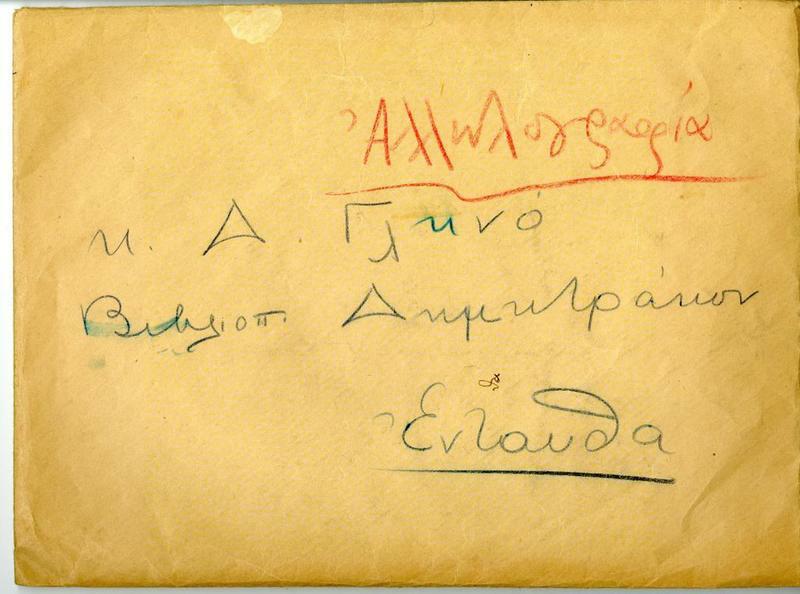 Ἀλληλογραφία
κ. Δ. Γληνό
Βιβλιοπ. Δημητράκου
Ἐνταῦθα